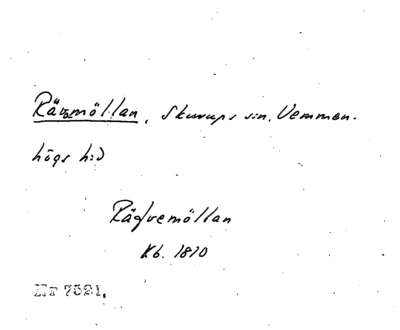 Rävmöllan, Skurups sn, Vemmen-
högs hd
Räfvemöllan
Kb. 1810
Nr 7521.